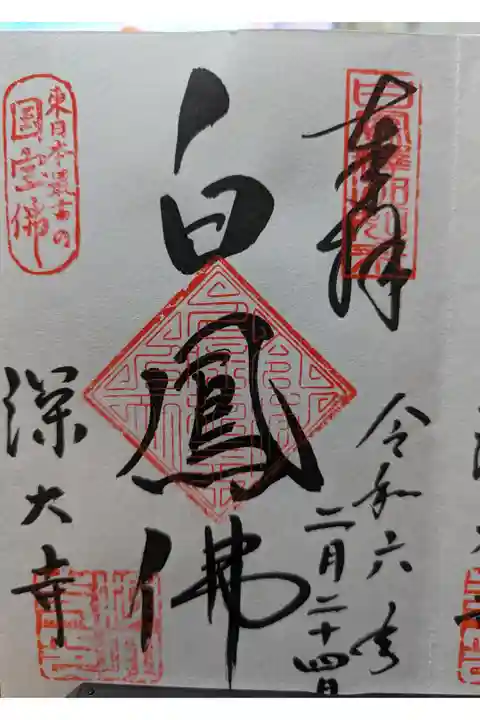 奉拝
令和六年
二月二十四日
白鳳佛
東日本最古の
国宝佛
深大寺